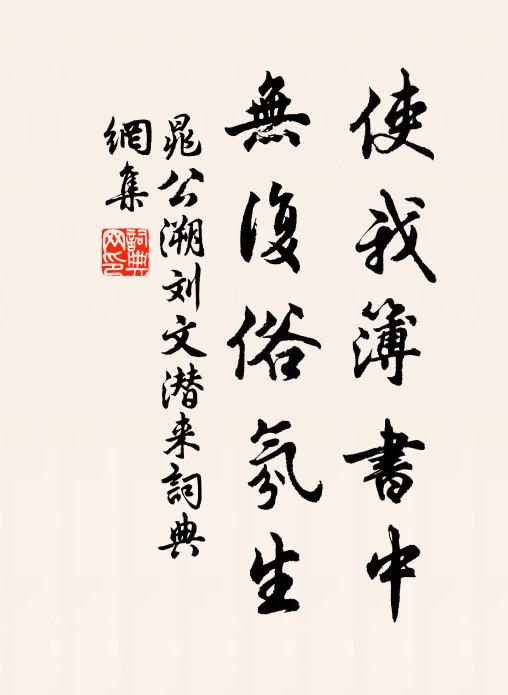 使我簿書中
無復俗氛生
晁公溯刘文潜来詞典
網集
詞典
网印